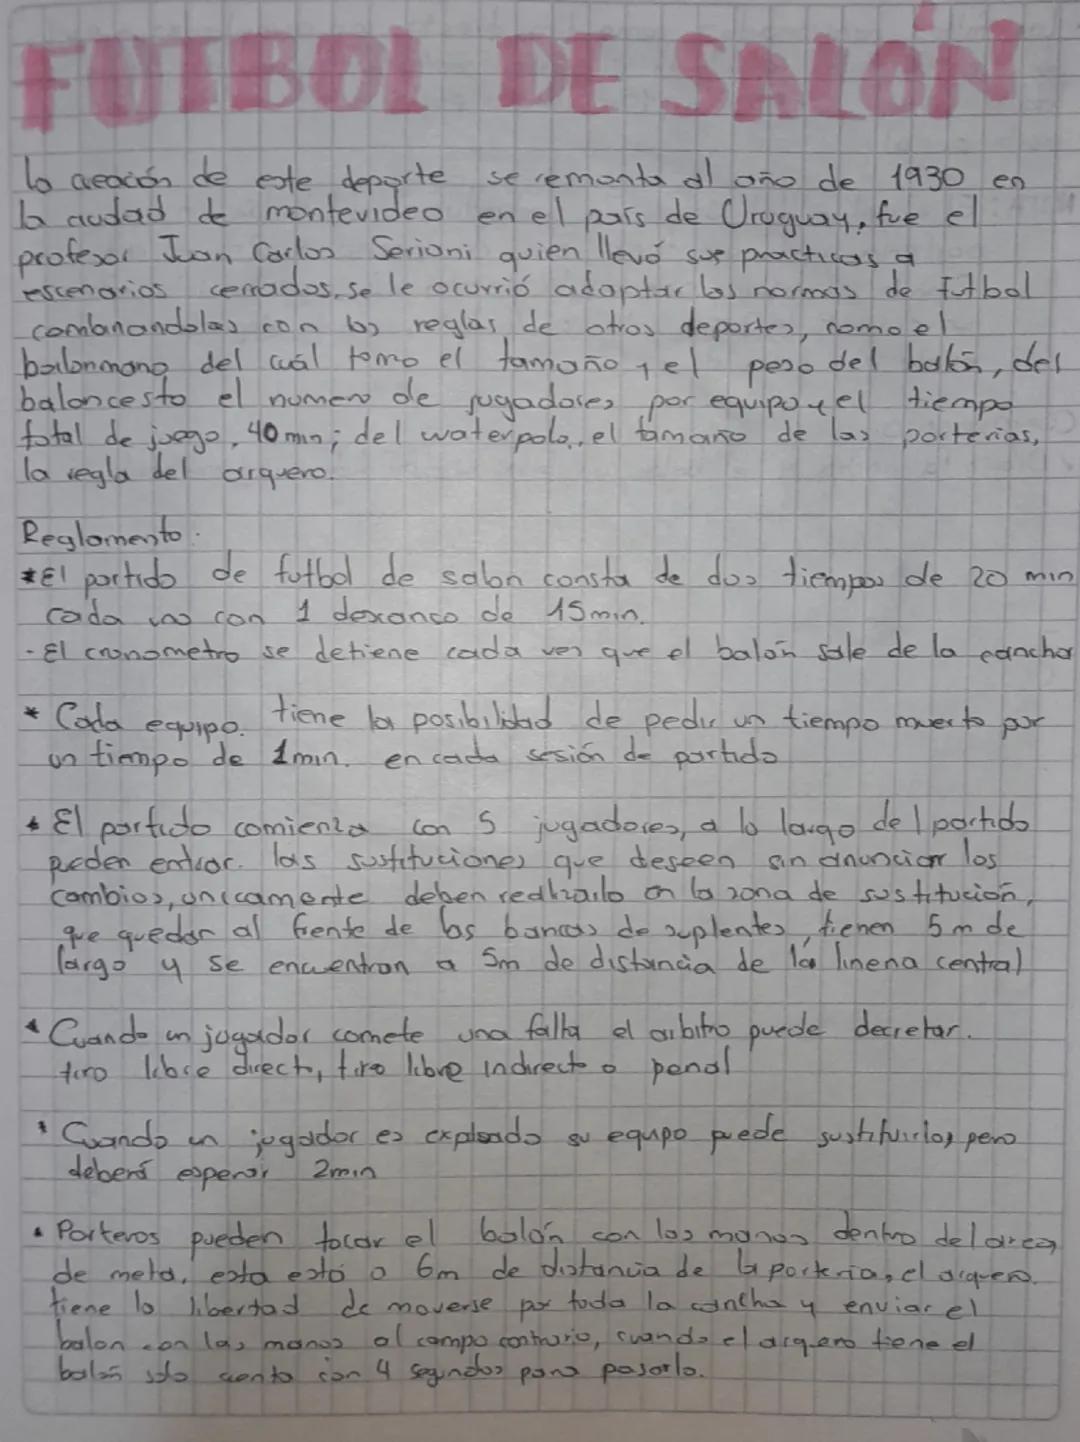 FUTBOL DE SALÓN
la creación de este deporte se remonta al año de 1930 en
la ciudad de montevideo en el país de Uruguay, fue el
profesor Juan Carlos Serioni quien llevó sus practicas a
escenarios cerrados, se le ocurrió adaptar las normas de futbol
combinandolas con las reglas de otros deportes, como el
balonmano del cuál tomo el tamaño y el peso del balón, del
baloncesto el numero de jugadores por equipo y el tiempo
total de juego, 40 min; del waterpolo, el tamaño de las porterias,
la regla del arquero.
Reglamento:
*El partido de futbol de salon consta de dos tiempos de 20 min
cada uno con 1 descanso de 15 min.
-El cronometro se detiene cada vez que el balón sale de la cancha
* Cada equipo. tiene la posibilidad de pedir un tiempo muerto por
un tiempo de 1 min. en cada sesión de partido
* El partido comienza con 5 jugadores, a lo largo del partido
pueden entrar. las sustituciones que deseen sin anunciar los
cambios, unicamente deben realizarlo en la zona de sustitución,
que quedan al frente de las bancas de suplentes, tienen 5m de
largo y se encuentran a 5m de distancia de la linena central
* Cuando un jugador comete una falta el arbitro puede decretar.
tiro libre directo, tiro libre indirecto o penal
* Cuando un jugador es explsado su equipo puede sustituirlo, pero
deberá esperar 2min
* Porteros pueden tocar el balón con las manos dentro del area
de meta, esta está a 6m de distancia de la porteria, el arquero.
tiene la libertad de moverse por toda la cancha y enviar el
balon con las manos al campo contrario, cuando el arquero tiene el
balón solo cuenta con 4 segundos para pasarlo.